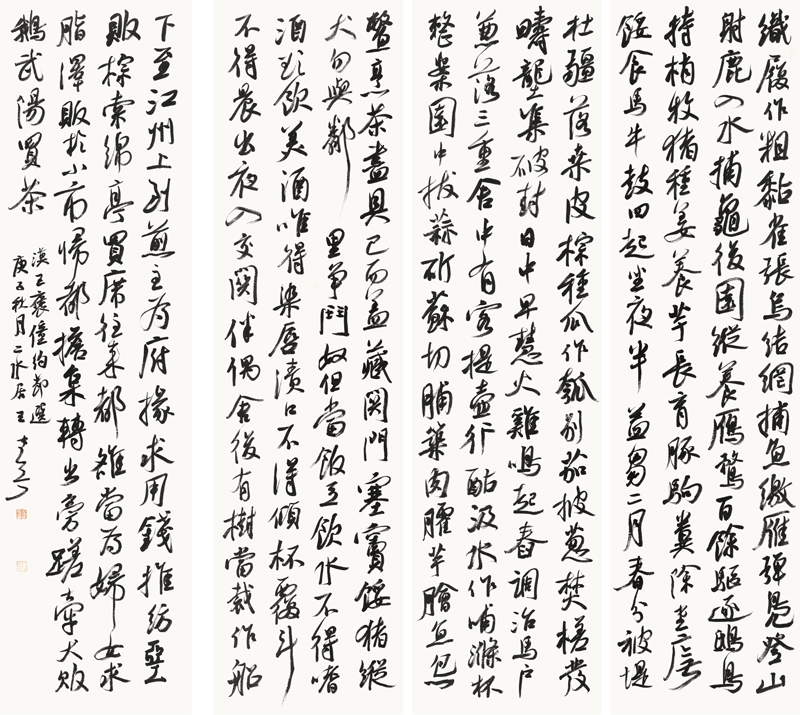 織履作粗黏雀張烏結網捕魚繳雁彈鳧登山
射鹿入水捕龜後園縱養雁鶩百餘驅逐鴟鳥
持梢牧豬種姜養芋長育豚駒糞除堂廡
餧食馬牛鼓四起坐夜半益芻二月春分被堤
杜疆落桑皮棕種瓜作瓠别茄披蔥焚槎發
疇壟集破封日中早慧火雞鳴起舂調治馬戶
兼落三重舍中有客提壺行酤汲水作餔滌杯
整案園中拔蒜斫蘇切脯築肉臛芋膾魚炰
鱉烹茶盡具已而蓋藏關門塞竇餧豬縱
犬勿與鄰里爭鬥奴但當飯豆飲水不得嗜
酒欲飲美酒唯得染唇漬口不得傾杯覆斗
不得晨出夜入交關伴偶舍後有樹當裁作船
下至江州上到煎主為府掾求用錢推紡堊
敗棕索綿亭買席往來都雒當為婦女求
脂澤販於小市歸都擔枲轉出旁蹉牽犬敗
鵝武陽買茶
漢王褒僮約節選
庚子秋月二水居王